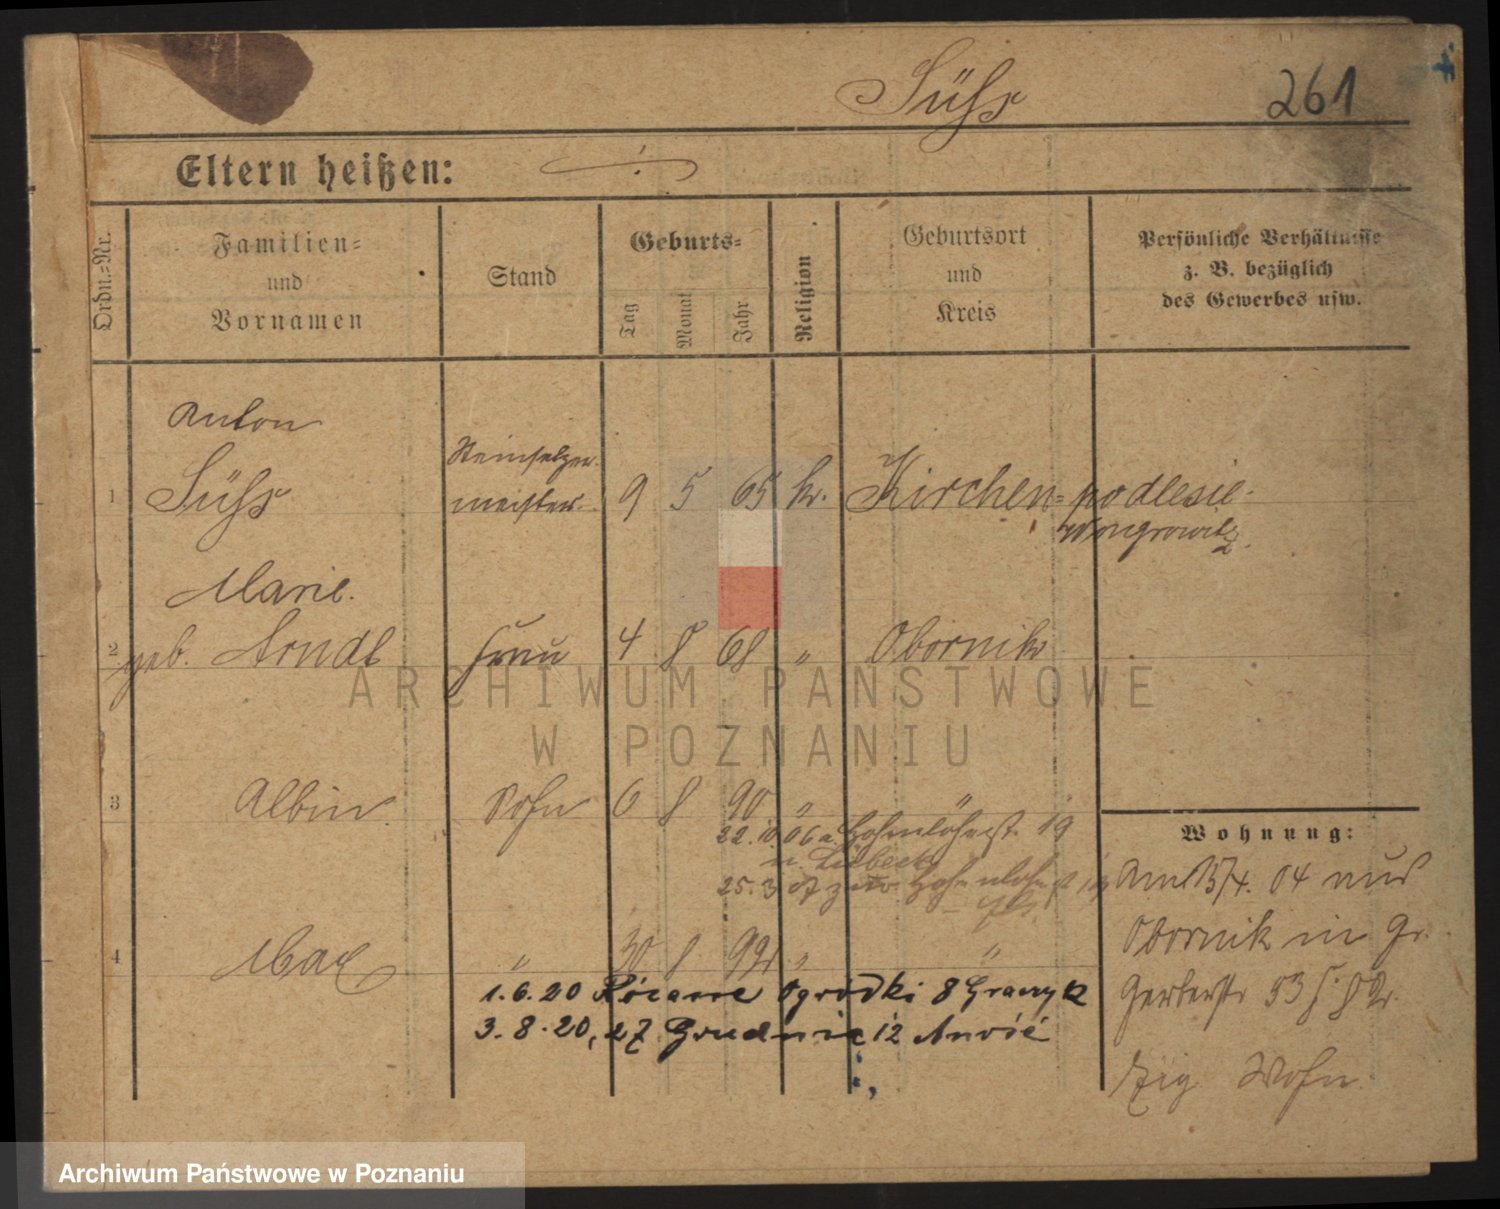 Sühs
261
Eltern heißen:
Ordn.=Nr.
Familien=
und
Vornamen
Stand
Geburts=
Tag
Monat
Jahr
Religion
Geburtsort
und
Kreis
Persönliche Verhältnisse
z. B. bezüglich
des Gewerbes usw.
Anton
1 Sühs
Steinsetzer
meister 9 5 65 k. Kirchen=podlesie
Wongrowitz
Marie.
2 geb. Arndt Frau 4 8 68 " Obornik
3 Albin Sohn 6 8 90 " "
22.10.06 a. Hohenlohestr. 19
n. Lübeck
25.3.07 Hohenlohestr
4 Max " 30 8 92 " "
1.6.20 Ogrodki 8 Graczyk
3.8.20, 27 Grudnia 12
Wohnung:
Am 15/4. 04 aus
Obornik in Gr.
Gerberstr 53
Wohn.
ARCHIWUM PAŃSTWOWE
W POZNANIU
Archiwum Państwowe w Poznaniu